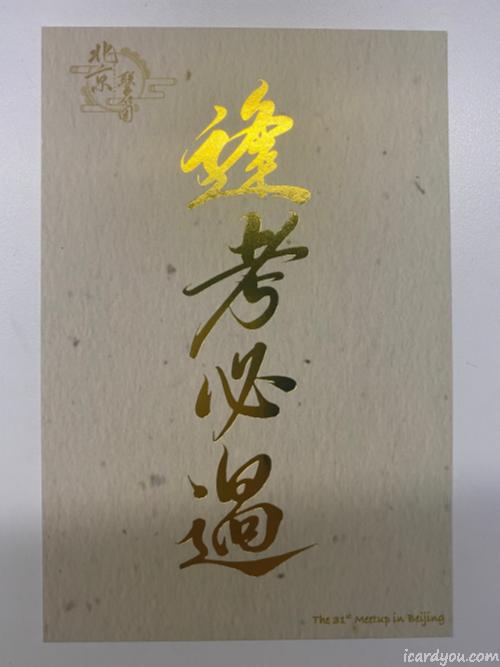 北京
逢
考
必
過
The 31st Meetup in Beijing
icardyou.com